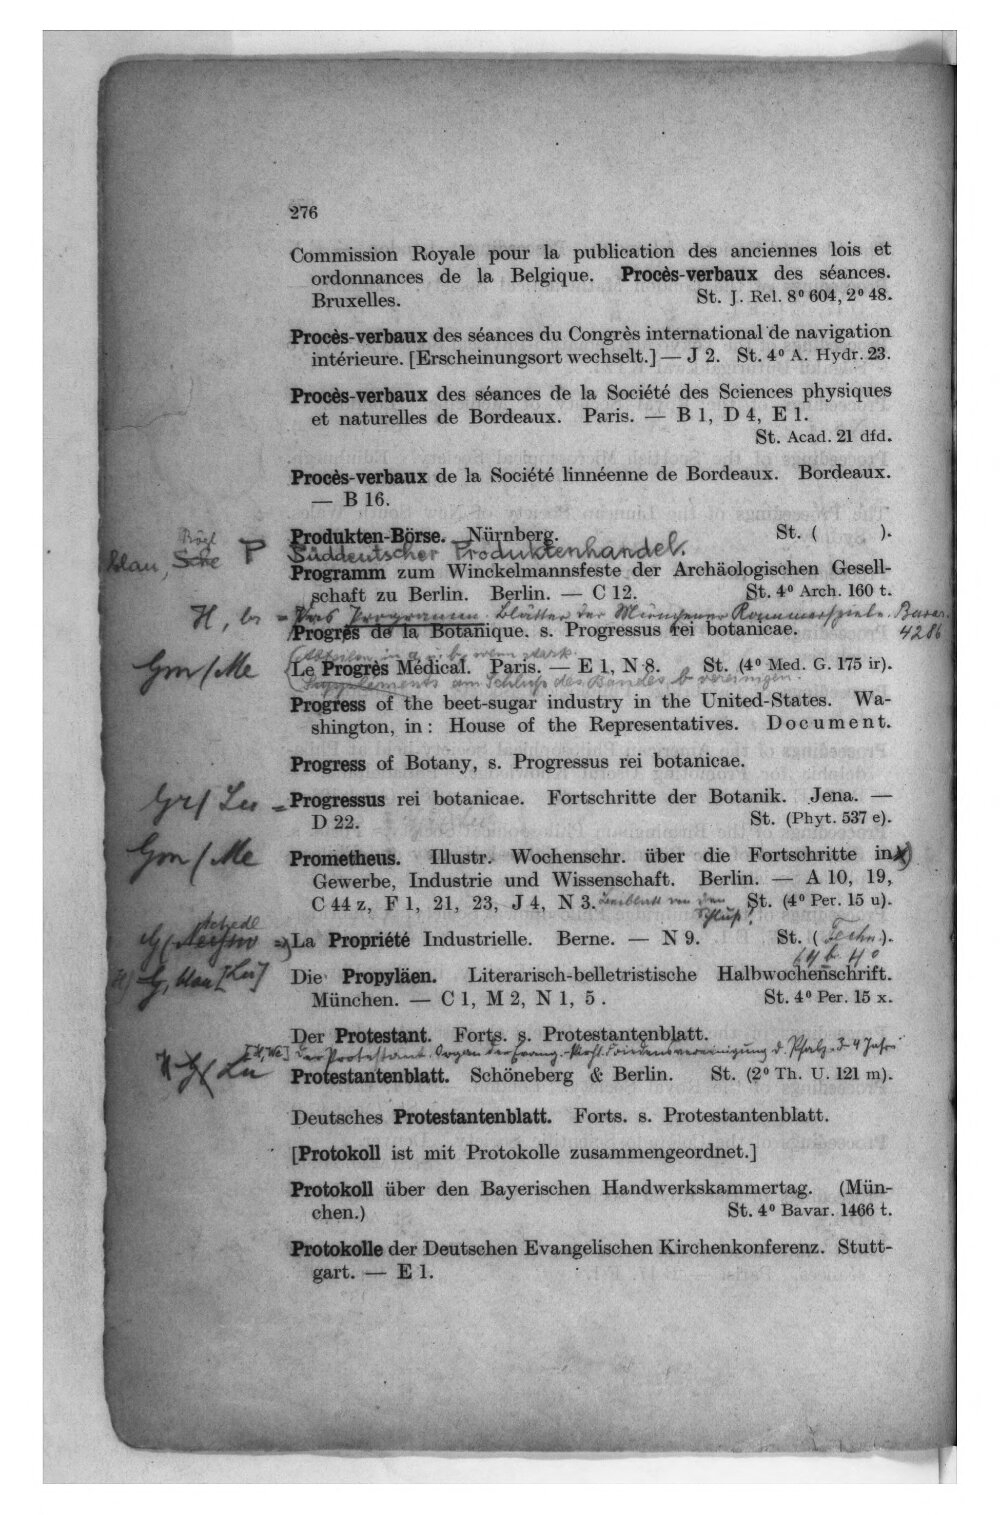 276
Commission Royale pour la publication des anciennes lois et
ordonnances de la Belgique. Procès-verbaux des séances.
Bruxelles. St. J. Rel. 8⁰ 604, 2⁰ 48.
Procès-verbaux des séances du Congrès international de navigation
intérieure. [Erscheinungsort wechselt.] — J 2. St. 4⁰ A. Hydr. 23.
Procès-verbaux des séances de la Société des Sciences physiques
et naturelles de Bordeaux. Paris. — B 1, D 4, E 1.
St. Acad. 21 dfd.
Procès-verbaux de la Société linnéenne de Bordeaux. Bordeaux.
— B 16.
Produkten-Börse. Nürnberg. St. ( ).
blau, Sche P Süddeutscher Produktenhandel.
Programm zum Winckelmannsfeste der Archäologischen Gesell-
schaft zu Berlin. Berlin. — C 12. St. 4⁰ Arch. 160 t.
H, br = Das Programm. Blätter der Münchener Kammerspiele. Bavar.
4286
Progrès de la Botanique. s. Progressus rei botanicae.
Gm / Me Le Progrès Médical. Paris. — E 1, N 8. St. (4⁰ Med. G. 175 ir).
Supplements am Schluß des Bandes b vereinigen.
Progress of the beet-sugar industry in the United-States. Wa-
shington, in: House of the Representatives. Document.
Progress of Botany, s. Progressus rei botanicae.
= Progressus rei botanicae. Fortschritte der Botanik. Jena. —
D 22. St. (Phyt. 537 e).
Gm / Me Prometheus. Illustr. Wochenschr. über die Fortschritte in
Gewerbe, Industrie und Wissenschaft. Berlin. — A 10, 19,
C 44 z, F 1, 21, 23, J 4, N 3. Beiblatt von den St. (4⁰ Per. 15 u).
Schluß!
La Propriété Industrielle. Berne. — N 9. St. ( Techn.).
64 b 4⁰
Die Propyläen. Literarisch-belletristische Halbwochenschrift.
München. — C 1, M 2, N 1, 5 . St. 4⁰ Per. 15 x.
Der Protestant. Forts. s. Protestantenblatt.
Der Protestant. Organ der evang.-prot. Friedensvereinigung d. Pfalz. 3-4 Jahr
Protestantenblatt. Schöneberg & Berlin. St. (2⁰ Th. U. 121 m).
Deutsches Protestantenblatt. Forts. s. Protestantenblatt.
[Protokoll ist mit Protokolle zusammengeordnet.]
Protokoll über den Bayerischen Handwerkskammertag. (Mün-
chen.) St. 4⁰ Bavar. 1466 t.
Protokolle der Deutschen Evangelischen Kirchenkonferenz. Stutt-
gart. — E 1.